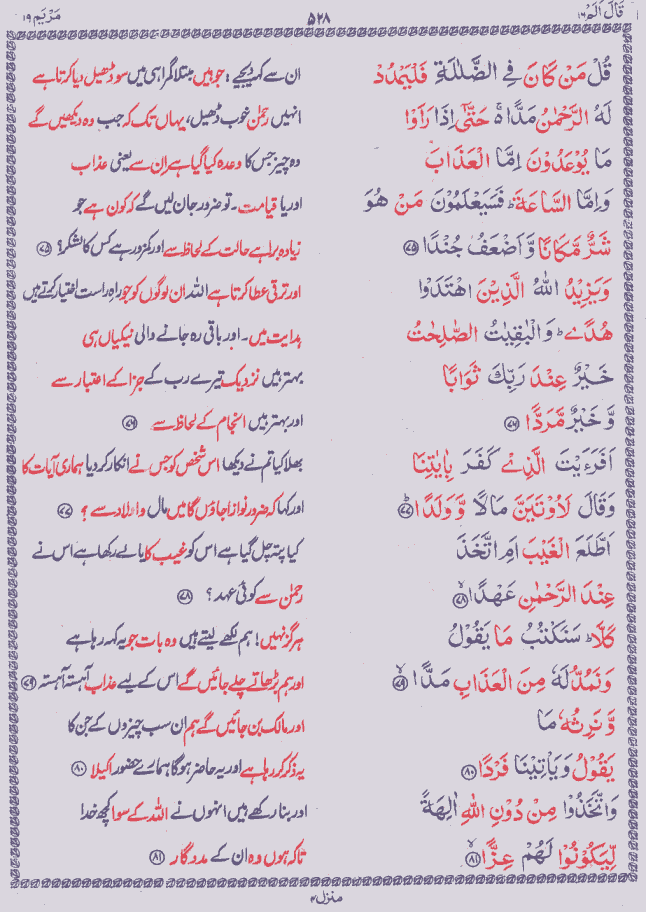 قَالَ اَلَمْ ۱۶
۵۲۸
مَرْیَم ۱۹
قُلْ مَنْ كَانَ فِي الضَّلٰلَةِ فَلْيَمْدُدْ
ان سے کہہ دیجیے! جو ہیں مبتلا گمراہی میں سو ڈھیل دیا کرتا ہے
لَهُ الرَّحْمٰنُ مَدًّا ۚ حَتّٰٓى اِذَا رَاَوْا
انہیں رحمٰن خوب ڈھیل، یہاں تک کہ جب وہ دیکھیں گے
مَا يُوْعَدُوْنَ اِمَّا الْعَذَابَ
وہ چیز جس کا وعدہ کیا گیا ہے ان سے یعنی عذاب
وَاِمَّا السَّاعَةَ ؕ فَسَيَعْلَمُوْنَ مَنْ هُوَ
اور یا قیامت۔ تو ضرور جان لیں گے کہ کون ہے جو
شَرٌّ مَّكَانًا وَّ اَضْعَفُ جُنْدًا ۝۷۵
زیادہ برا ہے حالت کے لحاظ سے اور کمزور ہے کس کا لشکر؟ ۝۷۵
وَيَزِيْدُ اللّٰهُ الَّذِيْنَ اهْتَدَوْا
اور ترقی عطا کرتا ہے اللہ ان لوگوں کو جو راہِ راست اختیار کرتے ہیں
هُدًى ؕ وَالْبٰقِيٰتُ الصّٰلِحٰتُ
ہدایت میں۔ اور باقی رہ جانے والی نیکیاں ہی
خَيْرٌ عِنْدَ رَبِّكَ ثَوَابًا
بہتر ہیں نزدیک تیرے رب کے جزا کے اعتبار سے
وَّ خَيْرٌ مَّرَدًّا ۝۷۶
اور بہتر ہیں انجام کے لحاظ سے ۝۷۶
اَفَرَءَيْتَ الَّذِيْ كَفَرَ بِاٰيٰتِنَا
بھلا کیا تم نے دیکھا اس شخص کو جس نے انکار کر دیا ہماری آیات کا
وَقَالَ لَاُوْتَيَنَّ مَالًا وَّوَلَدًا ۝۷۷
اور کہا کہ ضرور نوازا جاؤں گا میں مال و اولاد سے؟ ۝۷۷
اَطَّلَعَ الْغَيْبَ اَمِ اتَّخَذَ
کیا پتہ چل گیا ہے اس کو غیب کا یا لے رکھا ہے اس نے
عِنْدَ الرَّحْمٰنِ عَهْدًا ۝۷۸
رحمٰن سے کوئی عہد؟ ۝۷۸
كَلَّا ؕ سَنَكْتُبُ مَا يَقُوْلُ
ہرگز نہیں! ہم لکھے لیتے ہیں وہ بات جو یہ کہہ رہا ہے
وَنَمُدُّ لَهٗ مِنَ الْعَذَابِ مَدًّا ۝۷۹
اور ہم بڑھاتے چلے جائیں گے اس کے لیے عذاب آہستہ آہستہ ۝۷۹
وَّنَرِثُهٗ مَا
اور مالک بن جائیں گے ہم ان سب چیزوں کے جن کا
يَقُوْلُ وَيَاْتِيْنَا فَرْدًا ۝۸۰
یہ ذکر کر رہا ہے اور یہ حاضر ہوگا ہمارے حضور اکیلا ۝۸۰
وَاتَّخَذُوْا مِنْ دُوْنِ اللّٰهِ اٰلِهَةً
اور بنا رکھے ہیں انہوں نے اللہ کے سوا کچھ خدا
لِّيَكُوْنُوْا لَهُمْ عِزًّا ۝۸۱
تاکہ ہوں وہ ان کے مددگار ۝۸۱
منزل ۴